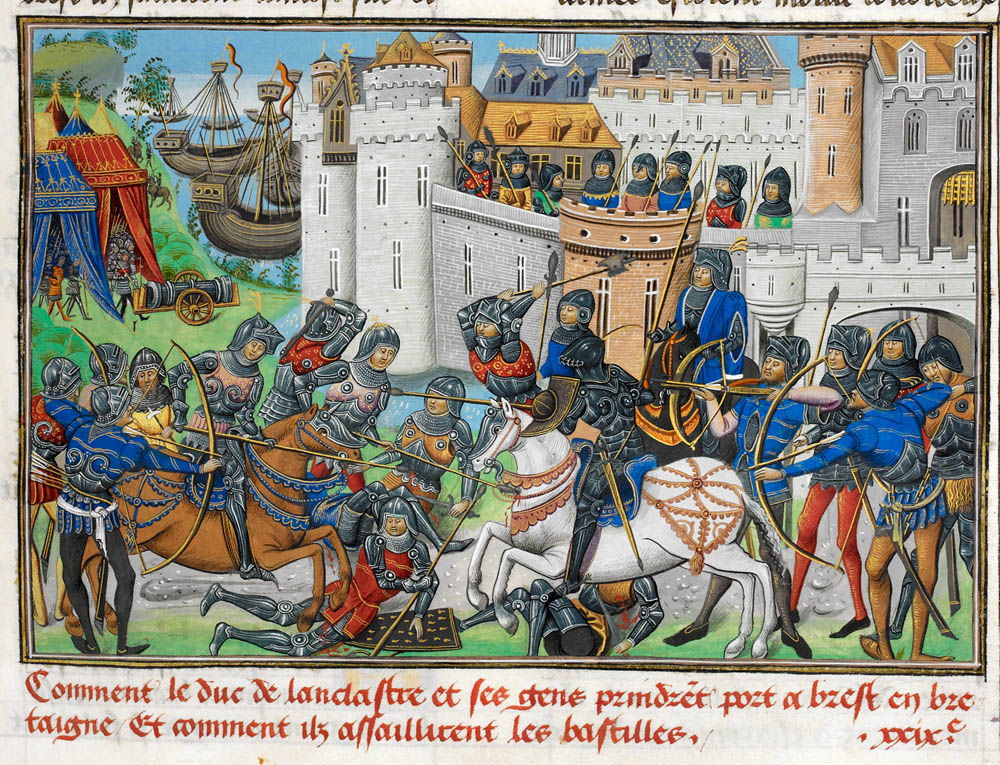 Comment le duc de lanclastre et ses gens prindrẽt port a brest en bre
taigne Et comment ilz assaillirent les bastilles. . xxixͤ.